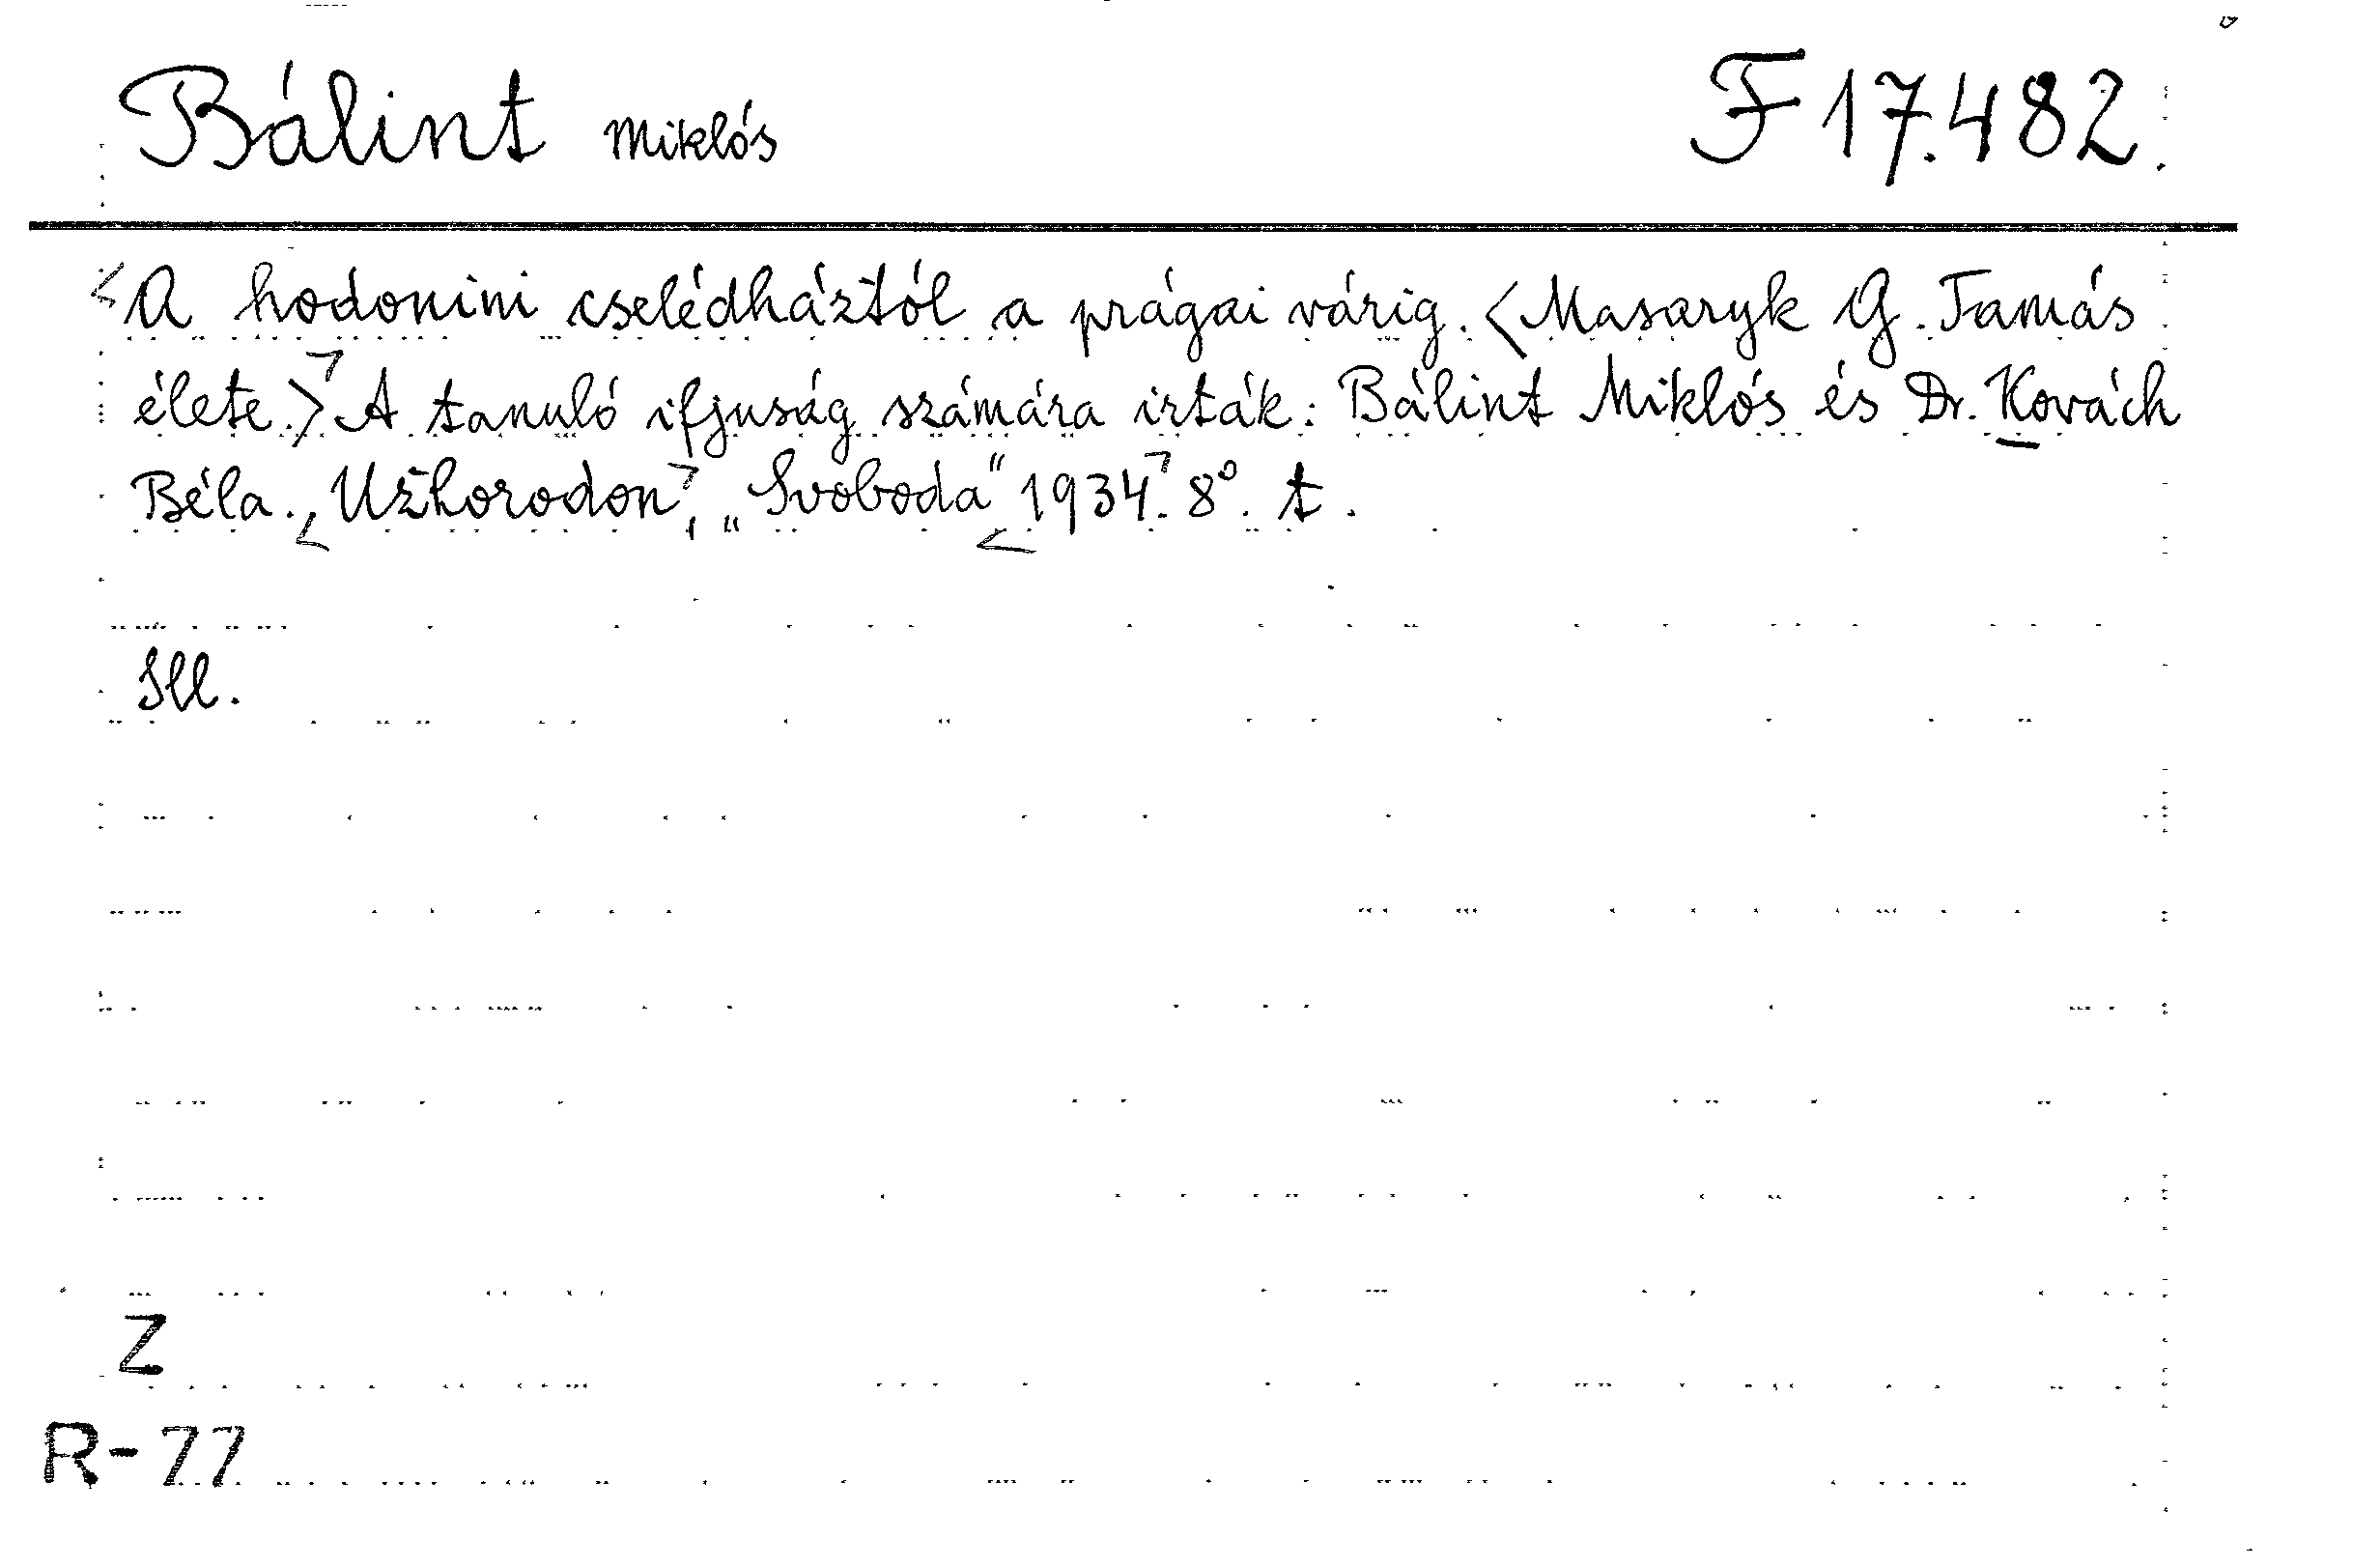 Bálint Miklós F 17.482.
<A hodonini cselédháztól a prágai várig. <Masaryk G. Tamás
élete.>> A tanuló ifjuság számára irták: Bálint Miklós és Dr. Kovách
Béla. <Užhorodon>, „Svoboda" <1934>. 8°. t.
Ill.
Z
R-77